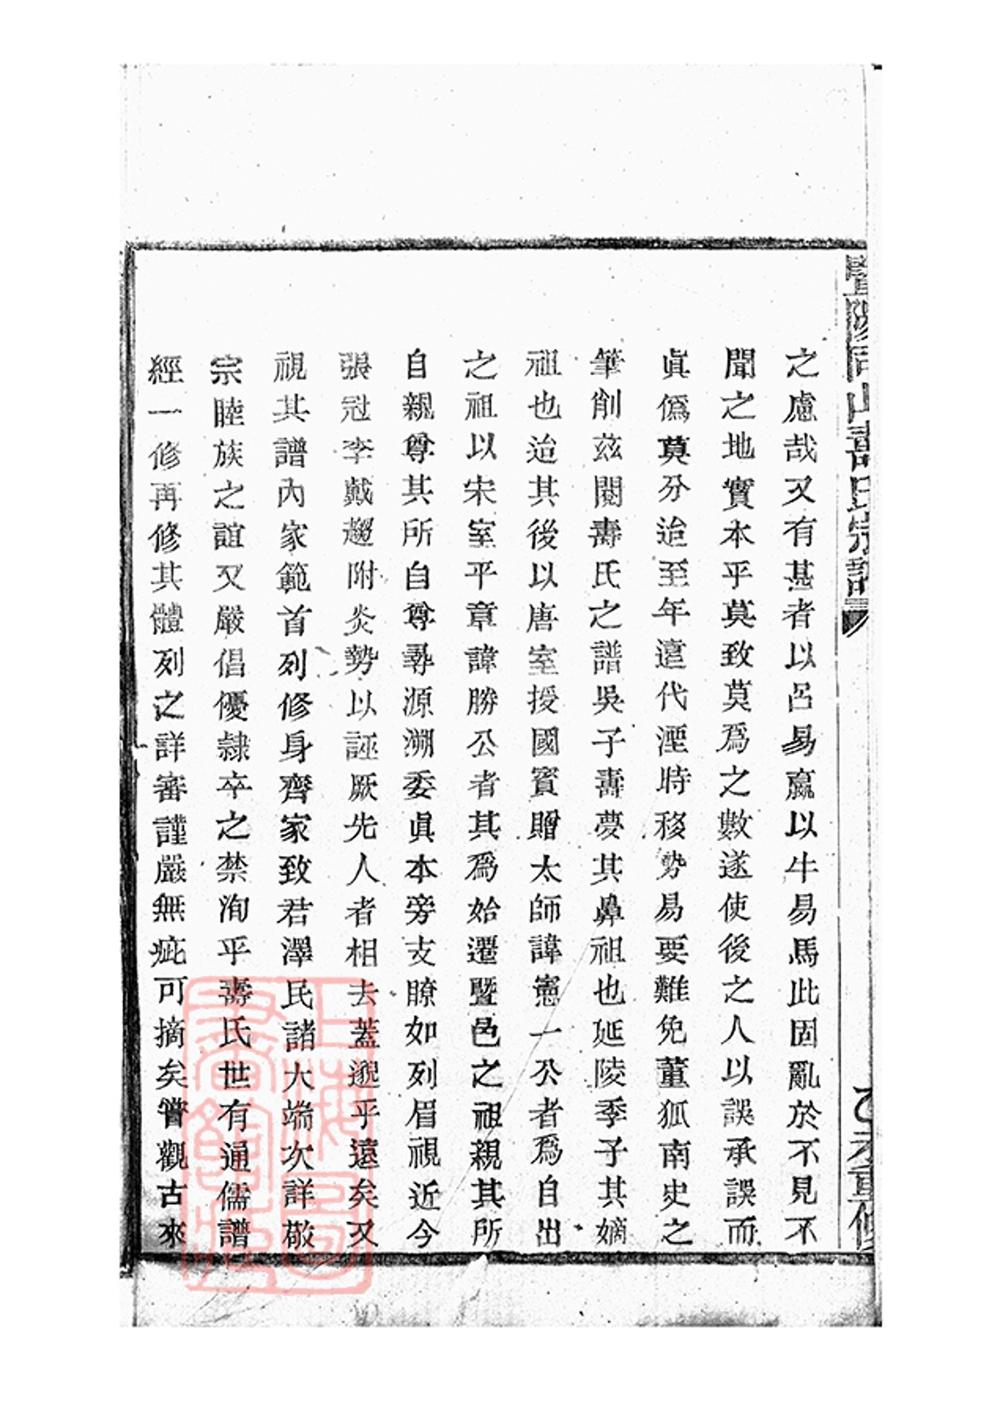 暨陽同山壽氏宗譜
乙亥重修
之慮哉又有甚者以呂易嬴以牛易馬此固亂於不見不
聞之地實本乎莫致莫爲之數遂使後之人以誤承誤而
眞僞莫分迨至年遠代湮時移勢易要難免董狐南史之
筆削茲閱壽氏之譜吳子壽夢其鼻祖也延陵季子其嫡
祖也迨其後以唐室授國賓贈太師諱憲一公者爲自出
之祖以宋室平章諱勝公者其爲始遷暨邑之祖親其所
自親尊其所自尊尋源溯委眞本旁支瞭如列眉視近今
張冠李戴趨附炎勢以誣厥先人者相去蓋邈乎遠矣又
視其譜內家範首列修身齊家致君澤民諸大端次詳敬
宗睦族之誼又嚴倡優隸卒之禁洵乎壽氏世有通儒譜
經一修再修其體列之詳審謹嚴無疵可摘矣嘗觀古來
上海圖書館藏